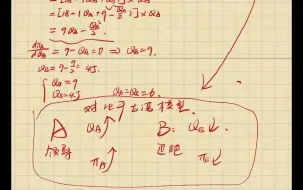 = [18-1QA+9-QA/2] × QA
= 9QA - QA²/2
dπA/dQA = 9-QA=0 ⇒ QA=9.
QB=9-9/2= 4.5
{ QA=9
QB=4.5 QA=QB=6.
对比于古诺模型.
A QA↗ B: QB↓.
领导 πA↗ 追随 πB↓